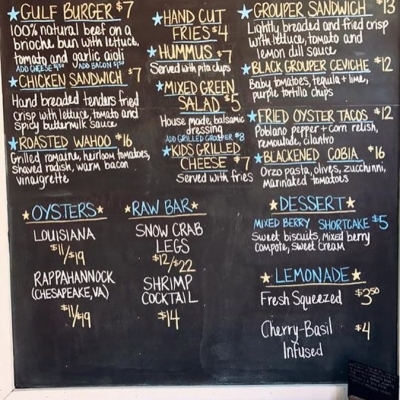 GULF BURGER $7
100% natural beef on a
brioche bun with lettuce,
tomato and garlic aioli
ADD CHEESE ADD BACON
CHICKEN SANDWICH $7
Hand breaded tenders fried
crisp with lettuce, tomato and
spicy buttermilk sauce
ROASTED WAHOO $16
Grilled romaine, heirloom tomatoes,
shaved radish, warm bacon
vinaigrette
HAND CUT
FRIES $4
HUMMUS $7
Served with pita chips
MIXED GREEN
SALAD $5
House made, balsamic
dressing
ADD GRILLED GROUPER $8
KIDS GRILLED
CHEESE $7
Served with fries
GROUPER SANDWICH $13
Lightly breaded and fried crisp
with lettuce, tomato and
lemon dill sauce
BLACK GROUPER CEVICHE $12
Baby tomatoes, tequila + lime,
purple tortilla chips
FRIED OYSTER TACOS $12
Poblano pepper + corn relish,
remoulade, cilantro
BLACKENED COBIA $16
Orzo pasta, olives, zucchini,
marinated tomatoes
OYSTERS
LOUISIANA
$11/$19
RAPPAHANNOCK
(CHESAPEAKE, VA)
$11/$19
RAW BAR
SNOW CRAB
LEGS
$12/$22
SHRIMP
COCKTAIL
$14
DESSERT
MIXED BERRY SHORTCAKE $5
Sweet biscuits, mixed berry
compote, sweet cream
LEMONADE
Fresh Squeezed $3.50
Cherry-Basil $4
Infused